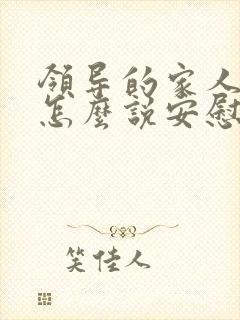 領导的家人
怎麼說安慰
笑佳人